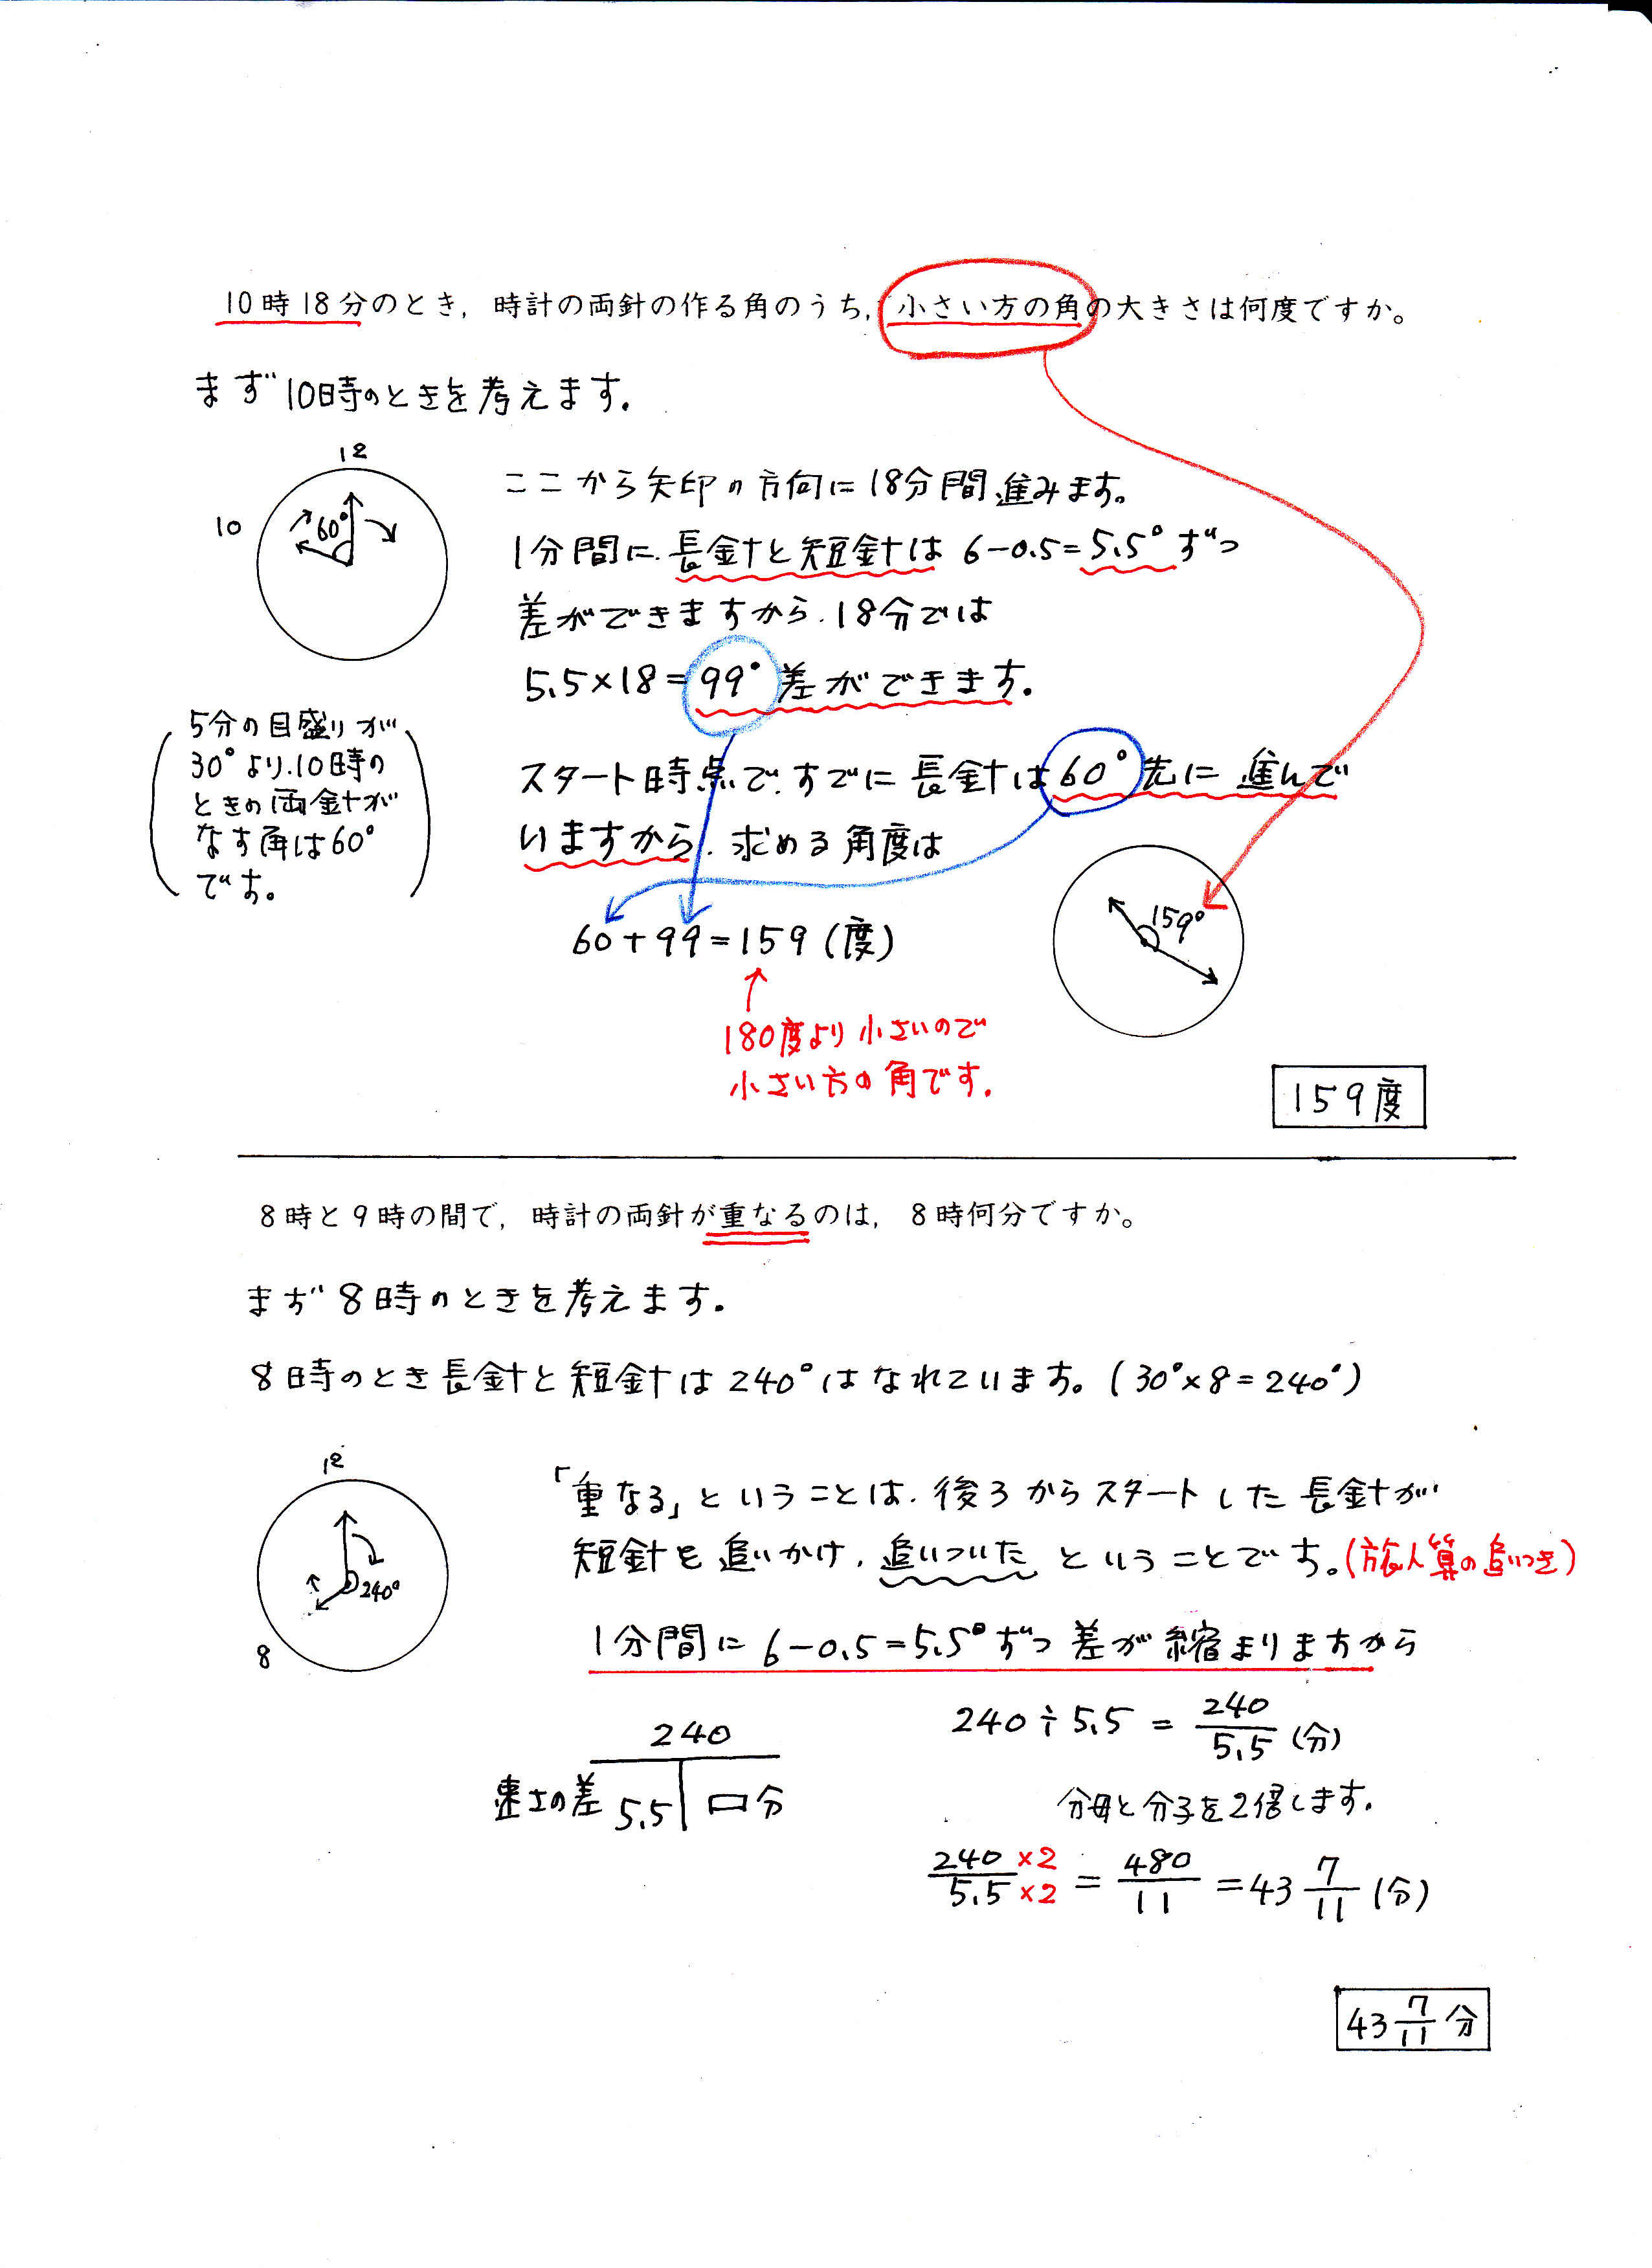 10時18分のとき，時計の両針の作る角のうち，小さい方の角の大きさは何度ですか。
まず10時のときを考えます。
12
10
60°
ここから矢印の方向に18分間進みます。
1分間に、長針と短針は 6－0.5＝5.5°ずつ
差ができますから、18分では
5.5×18＝99°差ができます。
5分の目盛りが
30°より、10時の
ときの両針が
なす角は60°
です。
スタート時点で、すでに長針は60°先に進んで
いますから、求める角度は
60＋99＝159（度）
159°
180度より小さいので
小さい方の角です。
159度
8時と9時の間で，時計の両針が重なるのは，8時何分ですか。
まず8時のときを考えます。
8時のとき長針と短針は240°はなれています。（30°×8＝240°）
12
8
240°
「重なる」ということは、後ろからスタートした長針が
短針を追いかけ、追いついたということです。（旅人算の追いつき）
1分間に 6－0.5＝5.5°ずつ差が縮まりますから
240
速さの差 5.5 □分
240÷5.5 = 240/5.5（分）
分母と分子を2倍します。
240×2/5.5×2 = 480/11 = 43 7/11（分）
43 7/11 分